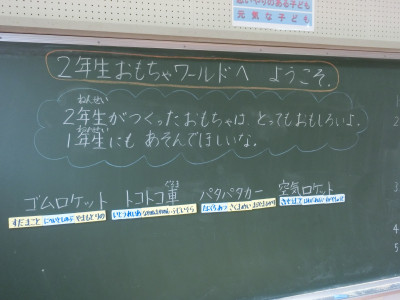 思いやりのある子ども
元気な子ども
2年生おもちゃワールドへ ようこそ。
ねんせい
2年生がつくったおもちゃは、とってもおもしろいよ。
ねんせい
1年生にも あそんでほしいな。
くるま
ゴムロケット トコトコ車 パタパタカー 空気ロケット